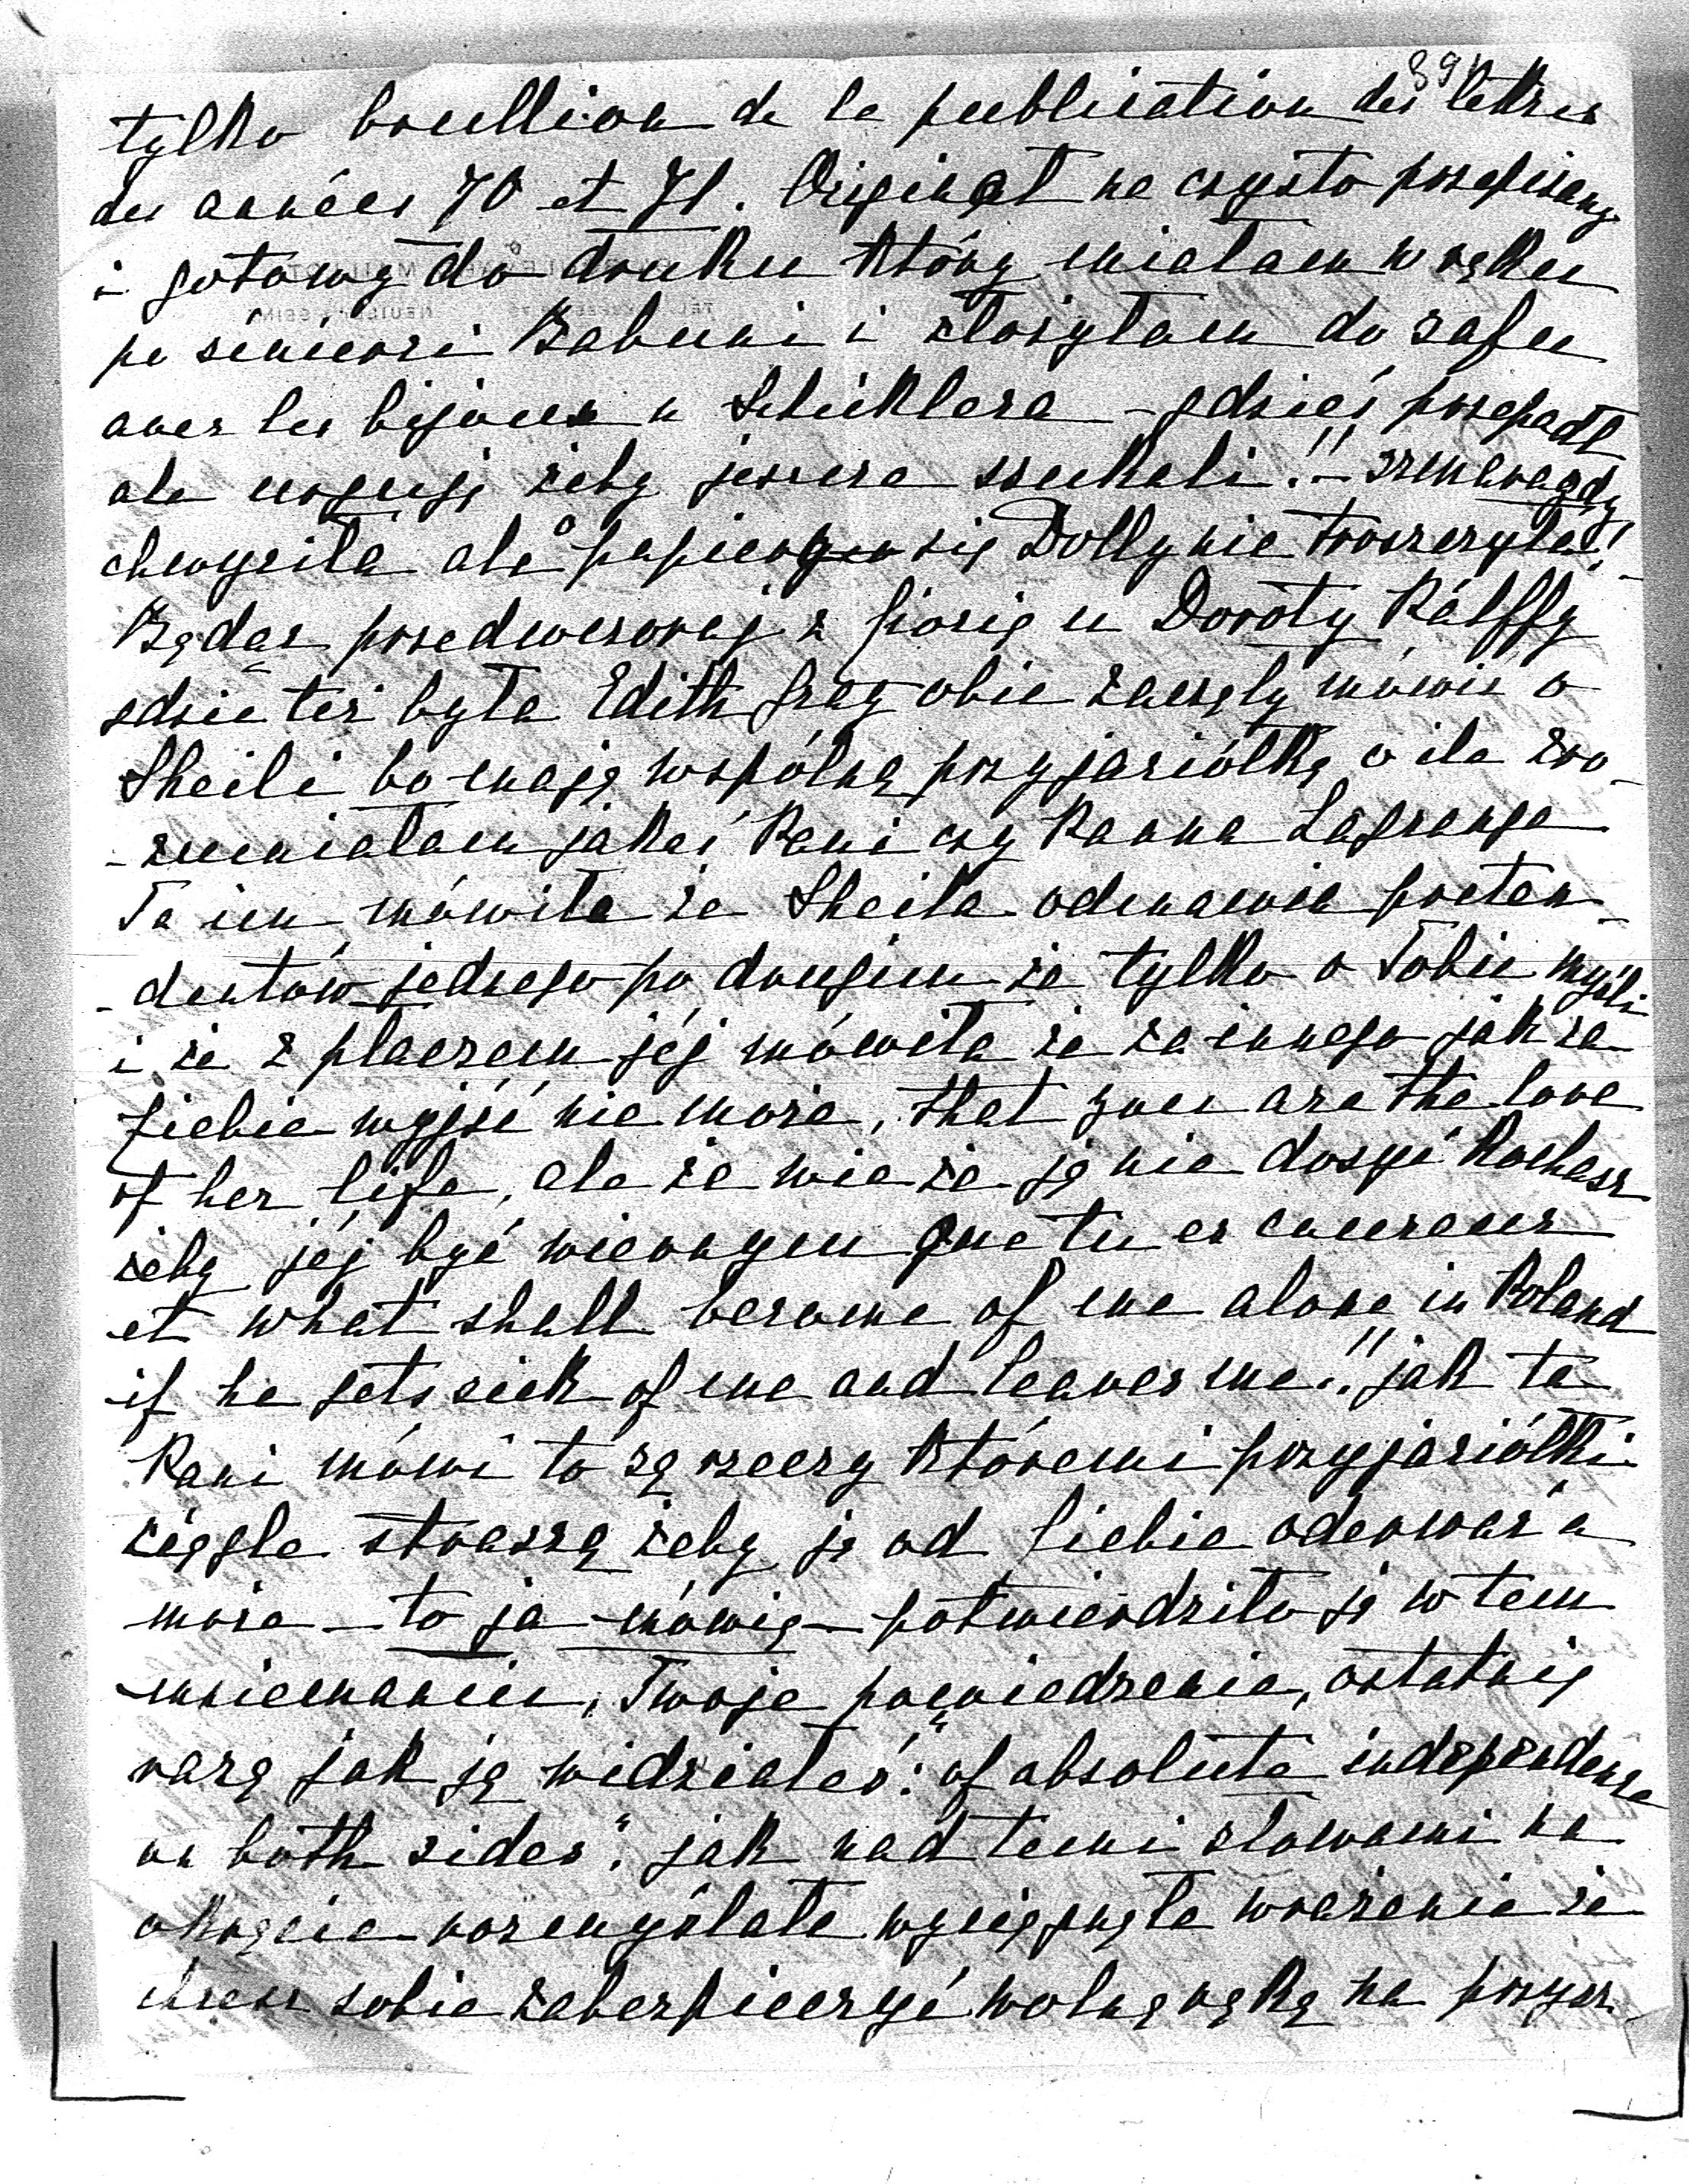 891
tylko brullion de la publication des lettres
des années 70 et 71. Originał na czysto przepisany
i gotowy do druku który miałam w ręku
po śmierci Babuni i złożyłam do safeu
avec les bijoux u Schicklera – gdzieś przepadł
ale urguję żeby jeszcze szukali!! – szmaragdy
chwyciła ale o papiery się Dolly nie troszczyła!!
Będąc przedwczoraj z Józią u Doroty Pálffy
gdzie też była Edith Gray obie zaczęły mówić o
Sheili bo mają wspólną przyjaciółkę o ile zro-
-zumiałam jakąś Pani czy Panna Lagrange
Ta im mówiła że Sheila odmawia preten-
-dentów jednego po drugim że tylko o Tobie myśli
i że z płaczem jéj mówiła że za innego jak za
Ciebie wyjść nie może, that you are the love
of her life, ale że wie że ją nie dosyć kochasz
żeby jéj być wiernym que tu es coureur
et what shall become of me alone in Poland
if he gets sick of me and leaves me!! jak ta
Pani mówi to są rzeczy któremi przyjaciółki
ciągle straszą żeby ją od Ciebie oderwać a
może – to ja mówię – potwierdziło ją w tem
mniemaniu, Twoje powiedzenie, ostatnią
razą jak ją widziałeś: "of absolute independence
on both sides". jak nad temi słowami na
okręcie rozmyślała wyciągnęła wrażenie że
chcesz sobie zabezpieczyć wolną rękę na przysz-